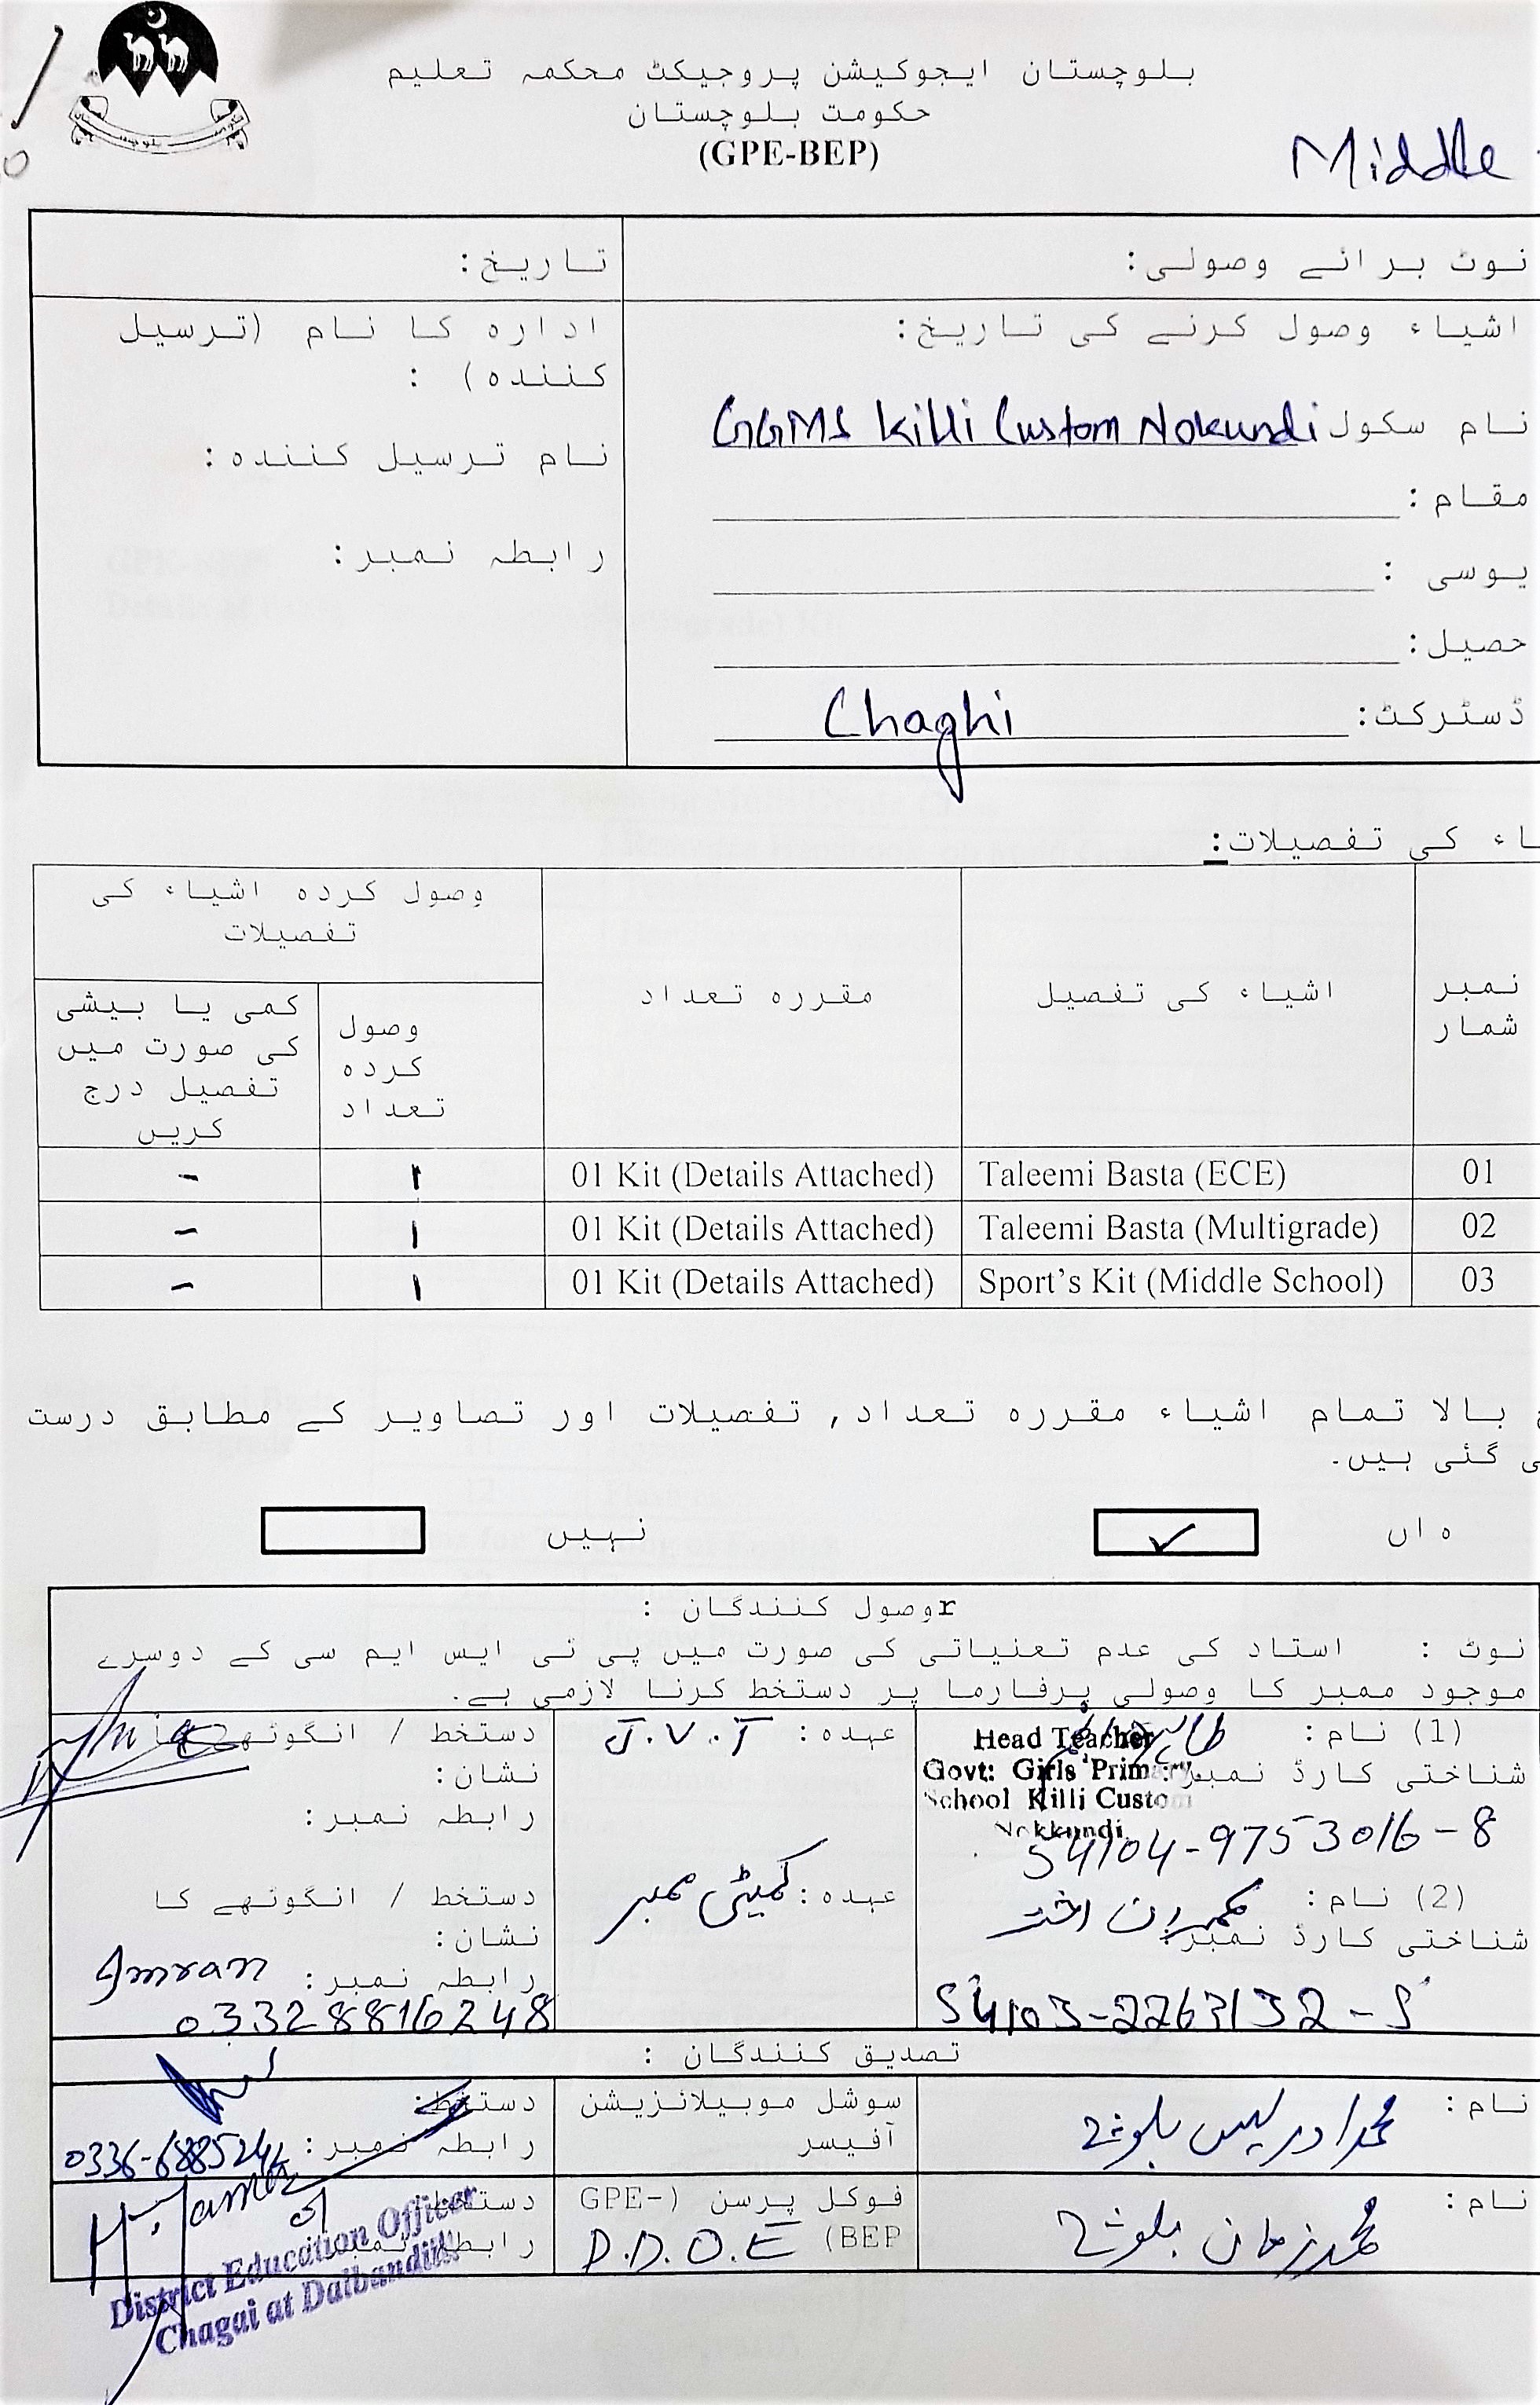 بلوچستان ایجوکیشن پروجیکٹ محکمہ تعلیم
حکومت بلوچستان
(GPE-BEP)
Middle
نوٹ برائے وصولی:
تاریخ:
اشیاء وصول کرنے کی تاریخ:
نام سکول GGMS Killi Custom Nokundi
مقام:
یوسی :
حصیل:
ڈسٹرکٹ: Chaghi
ادارہ کا نام (ترسیل
کنندہ) :
نام ترسیل کنندہ:
رابطہ نمبر:
اء کی تفصیلات:
نمبر شمار
اشیاء کی تفصیل
مقررہ تعداد
وصول کردہ اشیاء کی
تفصیلات
وصول
کردہ
تعداد
کمی یا بیشی
کی صورت میں
تفصیل درج
کریں
01 Taleemi Basta (ECE) 01 Kit (Details Attached) ۱ -
02 Taleemi Basta (Multigrade) 01 Kit (Details Attached) ۱ -
03 Sport's Kit (Middle School) 01 Kit (Details Attached) ۱ -
بالا تمام اشیاء مقررہ تعداد, تفصیلات اور تصاویر کے مطابق درست
گئی ہیں۔
ہاں ✓
نہیں
rوصول کنندگان :
نوٹ : استاد کی عدم تعنیاتی کی صورت میں پی ٹی ایس ایم سی کے دوسرے
موجود ممبر کا وصولی پرفارما پر دستخط کرنا لازمی ہے۔
(1) نام:
Head Teacher
Govt: Girls Primary
School Killi Custom
Nokkundi
شناختی کارڈ نمبر:
54104-9753016-8
عہدہ: J.V.T
دستخط / انگوٹھے کا
نشان:
رابطہ نمبر:
(2) نام:
شناختی کارڈ نمبر:
54103-2263132-5
عہدہ: کمیٹی ممبر
دستخط / انگوٹھے کا
نشان:
Imran
رابطہ نمبر:
03328816248
تصدیق کنندگان :
نام: محمد ادریس بلوچ
سوشل موبیلائزیشن
آفیسر
دستخط:
رابطہ نمبر:
نام: محمد زمان بلوچ
فوکل پرسن (GPE-
BEP) D.D.O.E
دستخط:
رابطہ نمبر:
District Education Officer
Chagai at Dalbandin